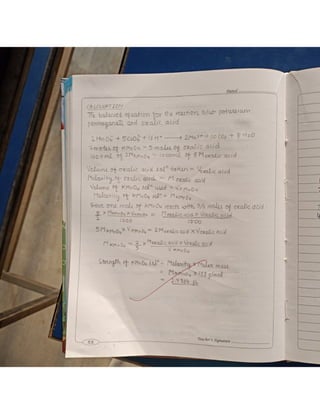 Date
CALCULATION
The balanced equation for the reaction b/w potassium
permanganate and oxalic acid
2MnO4⁻ + 5C2O4²⁻ + 16H⁺ → 2Mn²⁺ + 10CO2 + 8H2O
2 moles of KMnO4 = 5 moles of oxalic acid
Volume of oxalic acid solⁿ taken = V oxalic acid
Molarity of oxalic acid = M oxalic acid
Volume of KMnO4 solⁿ used = V KMnO4
Molarity of KMnO4 solⁿ = M KMnO4
Since one mole of KMnO4 reacts with 5/2 moles of oxalic acid
5/2 × M KMnO4 × V KMnO4 / 1000 = M oxalic acid × V oxalic acid / 1000
5 M KMnO4 × V KMnO4 = 2 M oxalic acid × V oxalic acid
M KMnO4 = 2/5 × M oxalic acid × V oxalic acid / V KMnO4
Strength of KMnO4 solⁿ = Molarity × Molar mass
= M KMnO4 × 158 g/mol
Teacher's Signature